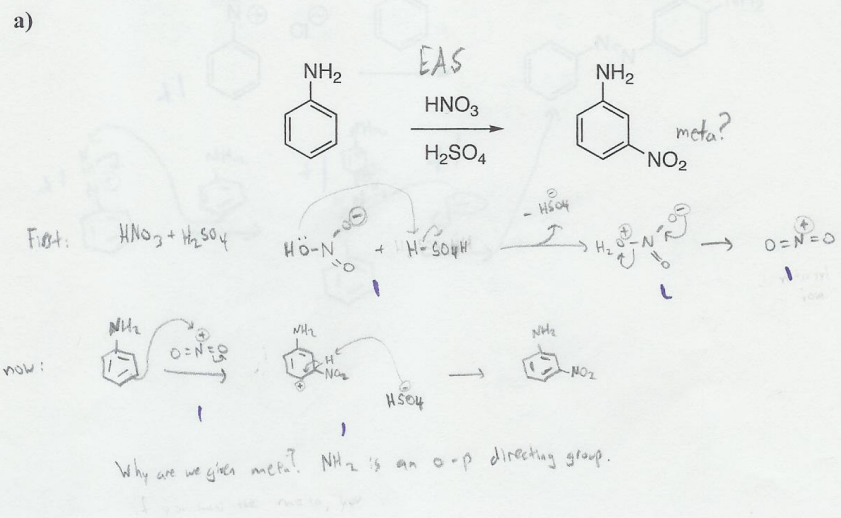 a)
EAS
NH2
HNO3
H2SO4
NH2
NO2
meta?
First: HNO3 + H2SO4 HÖ-N O⊖ O + H-SO4H -HSO4⊖ H2O⊕-N O⊖ O O=N⊕=O
1 1 1
now: NH2 O=N⊕=O NH2 H NO2 ⊕ HSO4⊖ NH2 NO2
1 1
Why are we given meta? NH2 is an o-p directing group.